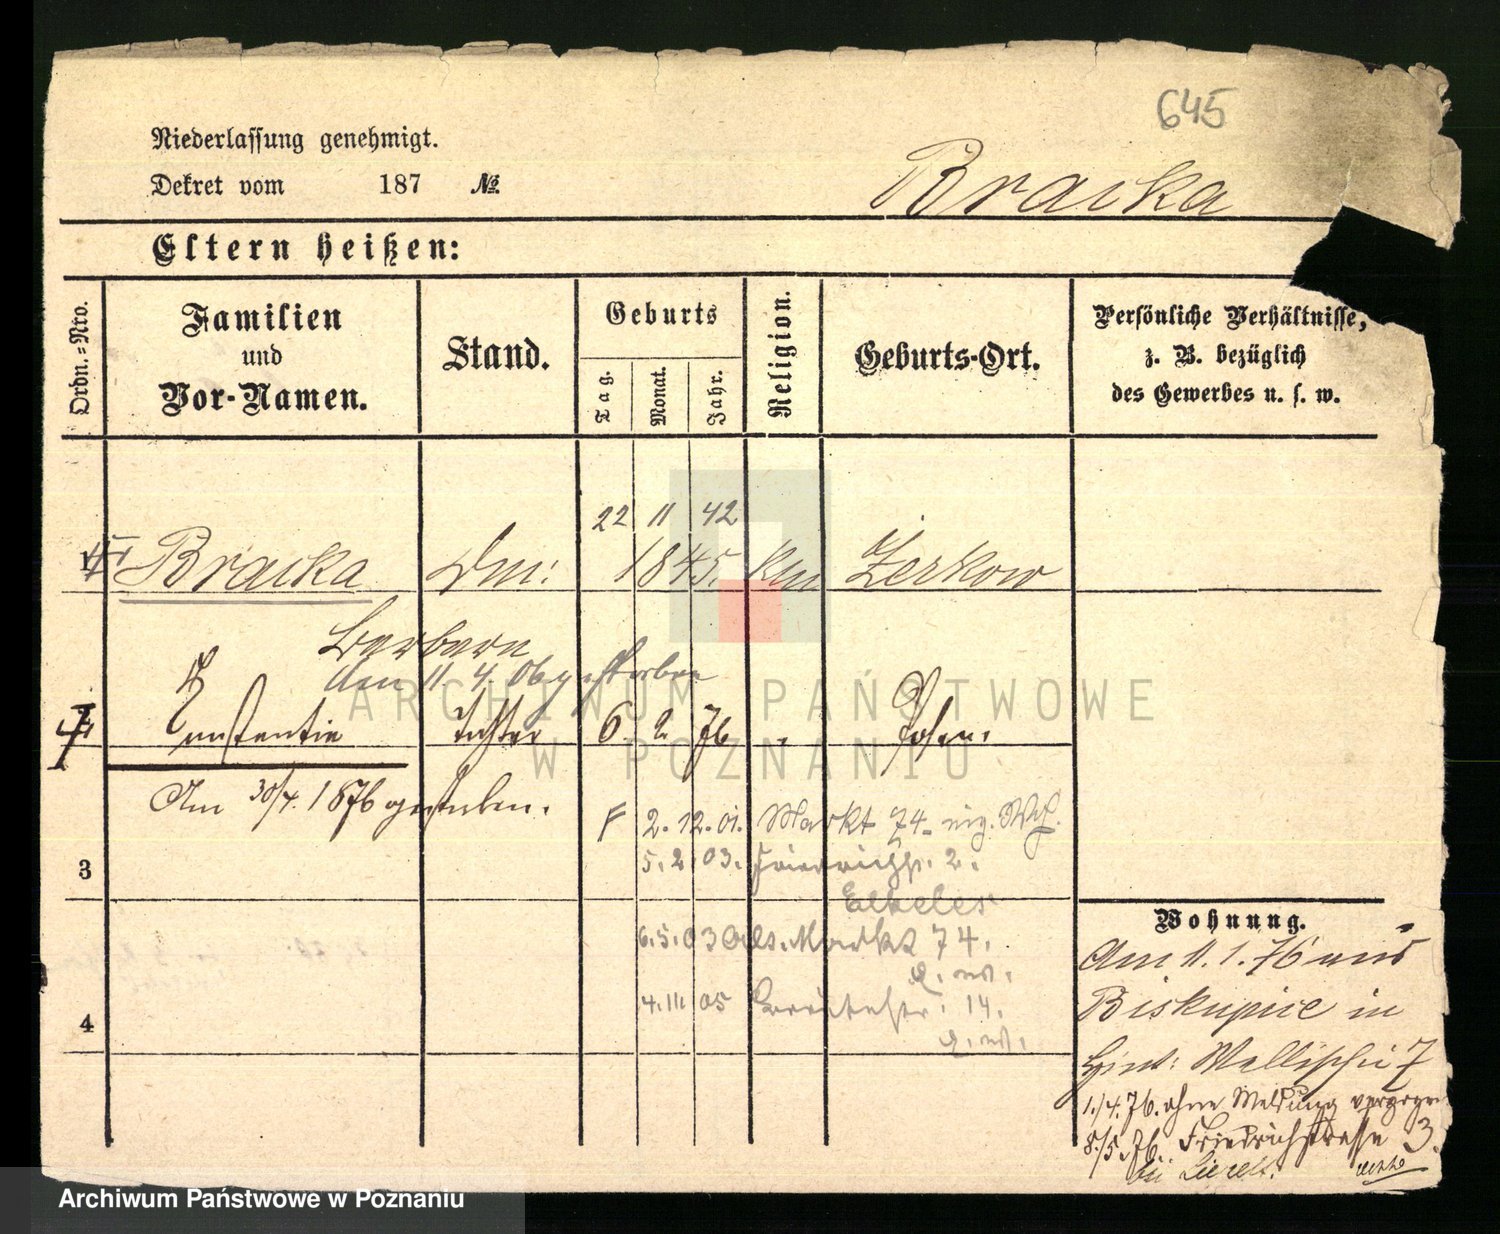 645
Niederlassung genehmigt.
Dekret vom 187 №.
Bracka
Eltern heißen:
Ordn.=Nro.
Familien
und
Vor-Namen.
Stand.
Geburts
Tag.
Monat.
Jahr.
Religion.
Geburts-Ort.
Persönliche Verhältnisse,
z. B. bezüglich
des Gewerbes u. s. w.
22 11 42
Bracka 1845. Zerkow
Barbara
den 11. 4. 06 gestorben
Constantia Tochter 6. 2. 76 Posen.
Am 30/4. 1876 gestorben.
2. 12. 01. Markt 74
3
5. 2. 03. 2.
Elkeles
Wohnung.
6. 5. 03 Markt 74.
Am 11. 1. 76 aus
4. 11. 05 14.
Biskupice in
4
Wallischei 7
1./4. 76. ohne Meldung
8./5. 76. Friedrichstrasse 3.
bei
ARCHIWUM PAŃSTWOWE
W POZNANIU
Archiwum Państwowe w Poznaniu